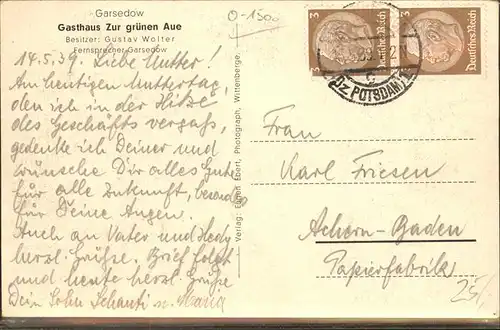 Garsedow
Gasthaus Zur grünen Aue
Besitzer: Gustav Wolter
Fernsprecher Garsedow
14.5.39. Liebe Mutter!
Am heutigen Muttertag,
den ich in der Hitze
des Geschäfts vergaß,
gedenke ich Deiner und
wünsche Dir alles Gute
für alle Zukunft, besond.
für Deine Augen.
Auch an Vater und Hedy
herzl. Grüße. Brief folgt
und heute herzl. Grüße
Dein Sohn Schanti u. Maria
Verlag: Eugen Ebert, Photograph, Wittenberge.
0-1300
3 Deutsches Reich
3 Deutsches Reich
POTSDAM
Frau
Karl Friesen
Achern-Baden
Papierfabrik
25,-